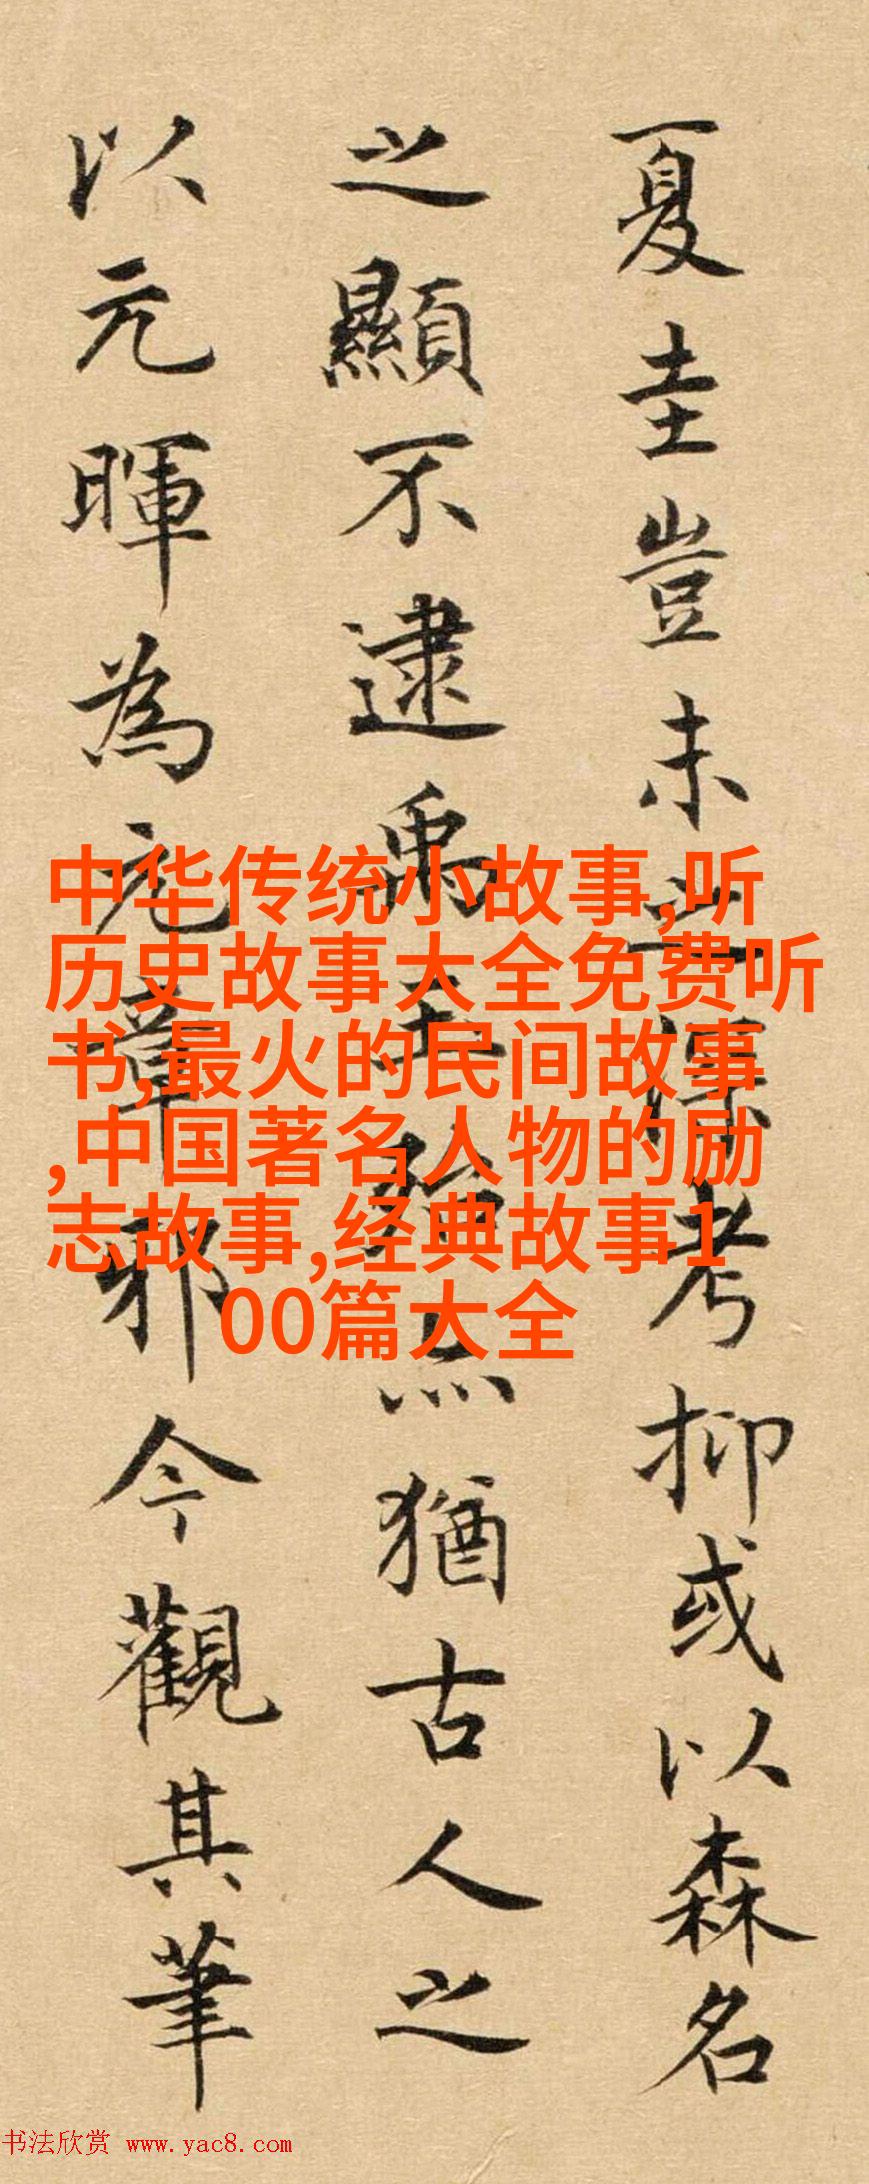 夏圭豈未之深考抑或以森名
之顯不逮禹玉殆猶古人之
以元暉為元章邪今觀其筆
中华传统小故事,听
历史故事大全免费听
书,最火的民间故事
,中国著名人物的励
志故事,经典故事1
00篇大全
书法欣赏 www.yac8.com